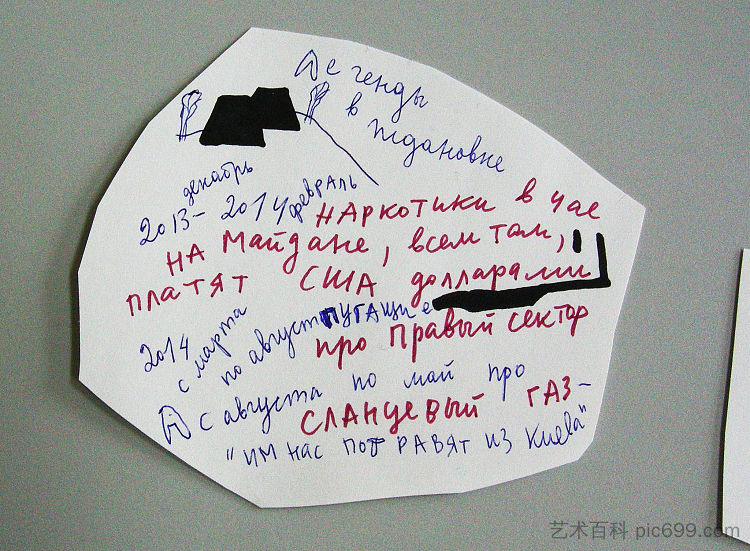 Легенды
в Ждановке
декабрь февраль
2013 - 2014 наркотики в чае
на Майдане, всем там,
платят США долларами
2014 с марта
по август пугащие
про Правый сектор
с августа по май про
сланцевый газ -
"им нас потравят из Киева"
艺术百科 pic699.com